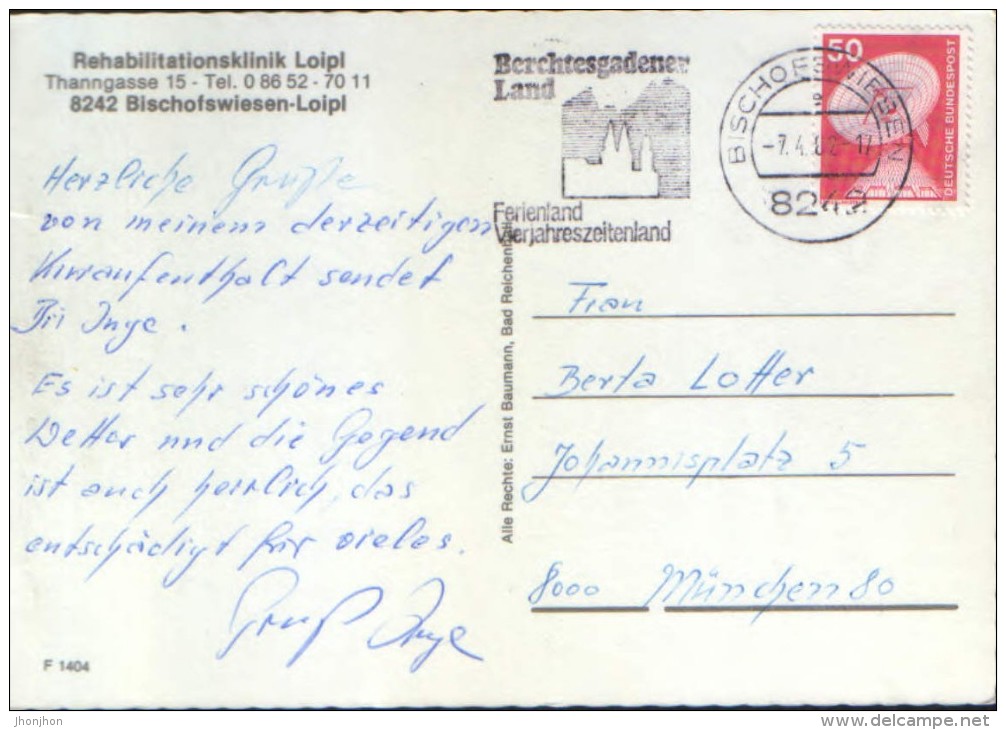 Rehabilitationsklinik Loipl
Thanngasse 15 - Tel. 0 86 52 - 70 11
8242 Bischofswiesen-Loipl
Herzliche Grüße
von meinem derzeitigen
Kuraufenthalt sendet
Inge.
Es ist sehr schönes
Wetter und die Gegend
ist auch herrlich, das
entschädigt für vieles.
Gruß Inge
F 1404
Alle Rechte: Ernst Baumann, Bad Reichenhall
Berchtesgadener
Land
Ferienland
Vierjahreszeitenland
BISCHOFSWIESEN
-7.4.82-17
8242
50
DEUTSCHE BUNDESPOST
Frau
Berta Lotter
Johannisplatz 5
8000 München 80
jhonjhon
www.delcampe.net